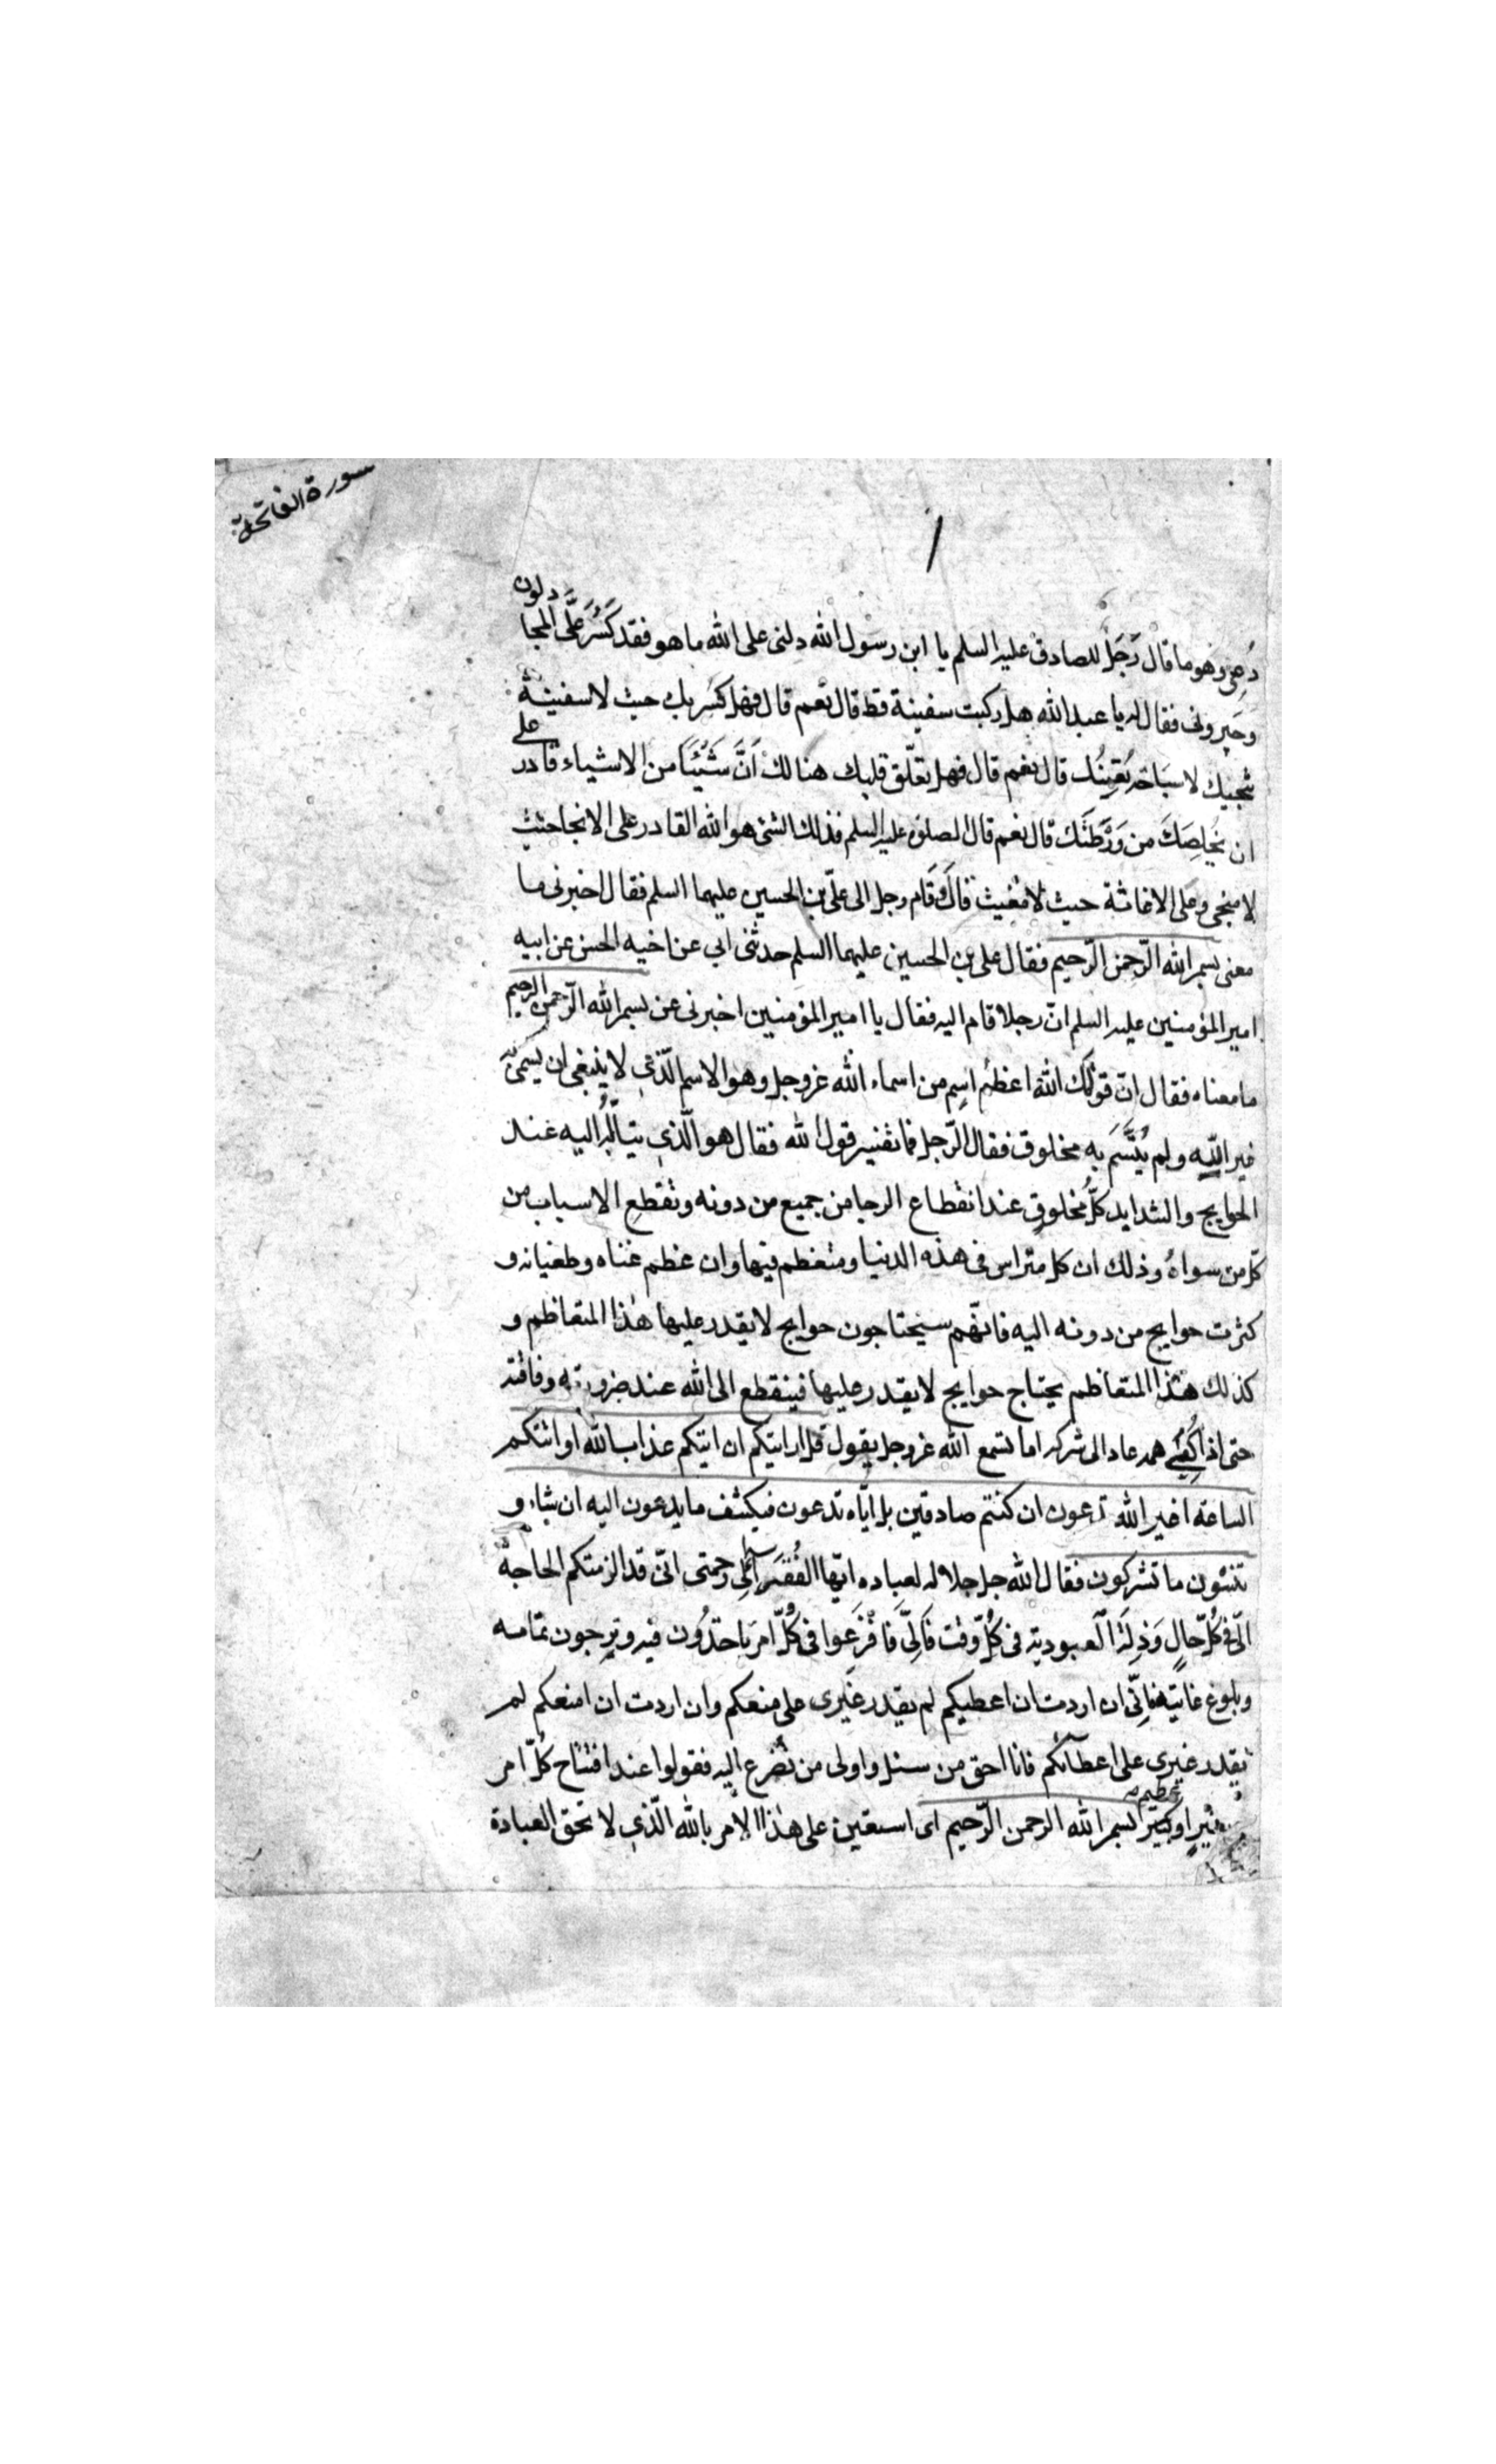 سورة الفاتحة
١
دُعى وهو ما قال رَجَل للصادق عليه السلم يا ابن رسول الله دلنى على الله ما هو فقد كَسُرَ عَلَّى المجادلون
وحيرونى فقال له يا عبد الله هل ركبت سفينة قط قال نعم قال فهل كسر بك حيث لا سفينة
تنجيك لا سبَاحة تُغِينُك قال نعم قال فهل تعلّق قلبك هنالك اَنَّ شَيْئًا من الاشياء قادر على
ان يُخلِصَكَ من وَرْطَتَك قال نعم قال الصادق عليه السلم فذلك الشئ هو الله القادر على الانجا حيث
لا منجى وعلى الاغاثة حيث لا مغيث قال وقَام رجل الى علىّ بن الحسين عليهما السلم فقال اخبرنى ما
معنى بسم الله الرّحمن الرّحيم فقال على بن الحسين عليهما السلم حدثنى ابي عن اخيه الحسن عن ابيه
امير المؤمنين عليه السلم انّ رجلا قام اليه فقال يا امير المؤمنين اخبرنى عن بسم الله الرّحمن الرحيم
ما معناه فقال انّ قولك الله اعظم اسِم من اسماء الله عز وجل وهو الاسم الّذي لا ينبغى ان يسمى به
غير الله ولم يُتَسَّمَ به مخلوق فقال الرّجل فما تفسير قول الله فقال هو الّذي يتالّهُ اليه عند
الحوايج والشدايد كلّ مُخلوقٍ عند انقطاع الرجا من جميع من دونه وتقطعِ الاسباب من
كلّ من سواهُ وذلك ان كل متراس فى هذه الدنيا ومتعظم فيها وان عظم غناه وطغيانه و
كثرت حوايج من دونه اليه فانّهم سيحتاجون حوايج لا يقدر عليها هٰذا المتعاظم و
كذلك هٰذا المتعاظم يحتاج حوايج لا يقدر عليها فينقطع الى الله عند ضرورته وفاقته
حتى اذا كُفِيَ همه عاد الى شركه اما تسمع الله عز وجل يقول قل ارايتكم ان اتيكم عذاب الله او اتتكم
الساعة اغير الله تدعون ان كنتم صادقين بل ايّاه تدعون فيكشف ما يدعون اليه ان شاء و
تنسون ما تشركون فقال الله جل جلاله لعباده ايّها الفُقَراء الى رحمتى انّى قد الزمتكم الحاجة
الىّ فى كُلّ حالٍ وَذِلَّة العبودية فى كُلّ وقت فَاِلىَّ فَافْزَعوا فى كُلّ امر تاخذُون فيه وترجون تمامه
وبلوغ غايته فانّى ان اردت ان اعطيكم لم يقدر غيرى على منعكم وان اردت ان امنعكم لم
يقدر غيرى على اعطائكم فانا احق من سئل واولى من تضرع اليه فقولوا عند افتتاح كُلّ امر
او كبير بسم الله الرحمن الرّحيم اى استعين على هٰذا الامر بالله الّذي لا تحق العبادة